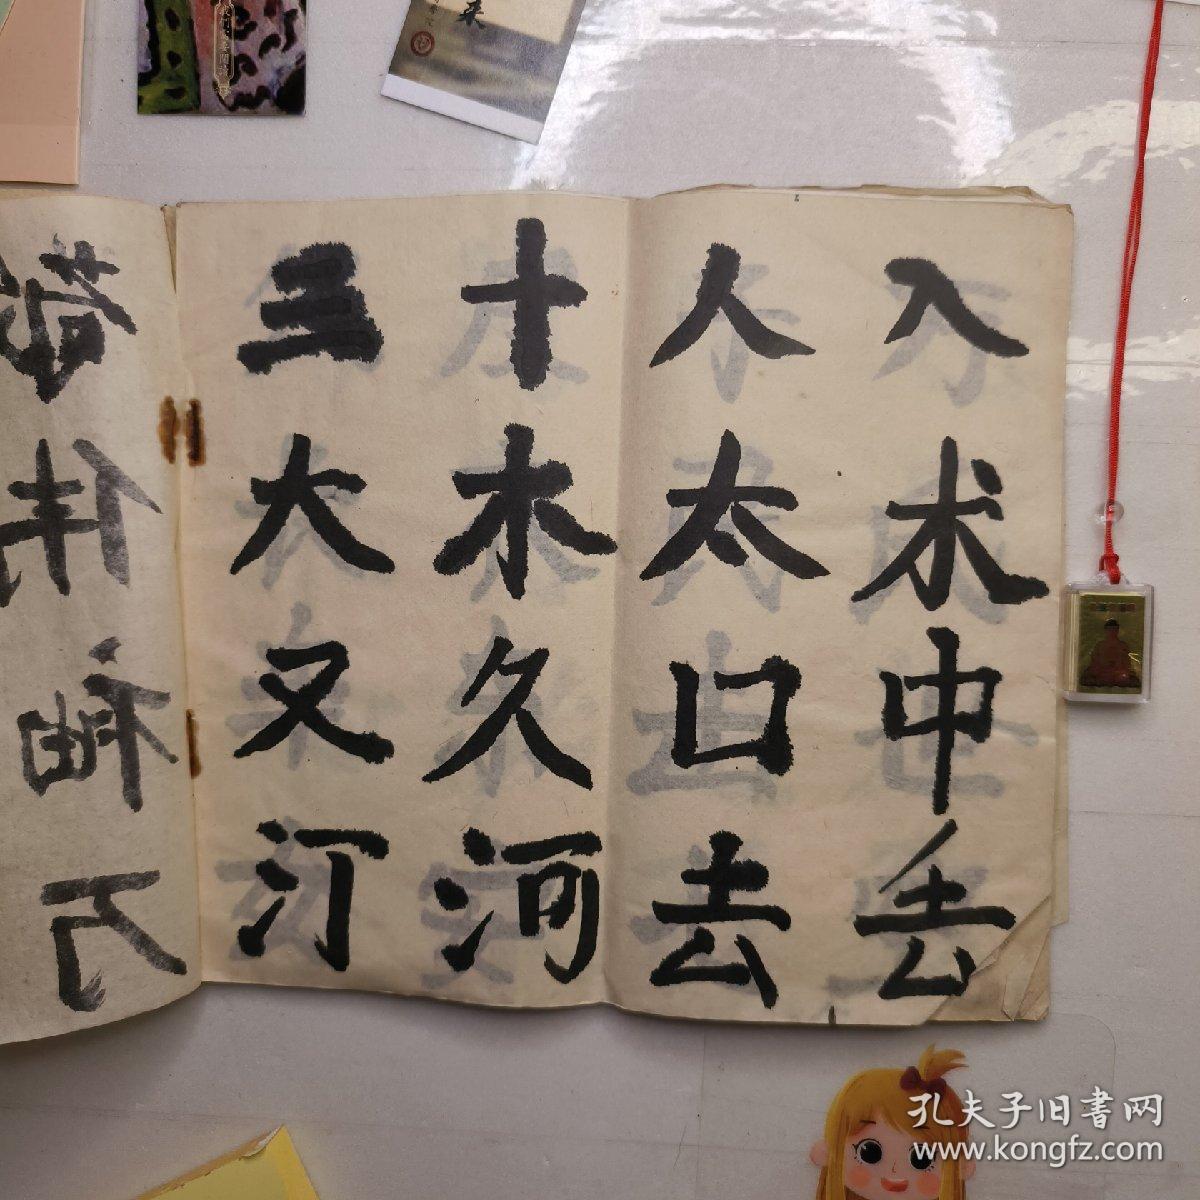 入术中丢
人太口去
十木久河
三大又汀
孔夫子旧書网
www.kongfz.com